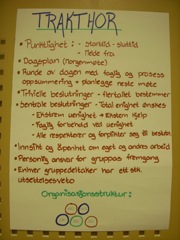 TRAKTHOR
• Punktlighet: - Starttid - sluttid
- Møde fra
• Dagsplan (morgenmøte)
• Runde av dagen med faglig og prosess
oppsummering + planlegge neste møte
• Trivielle beslutninger - flertallet bestemmer
• Sentrale beslutninger - Total enighet ønskes
- Ekstrem uenighet → Ekstern hjelp
- Faglig forbehold ved uenighet
- Alle respekterer og forplikter seg til beslutn.
• Innsikt og åpenhet om eget og andres arbeid
• Personlig ansvar for gruppas fremgang
• Enhver gruppedeltaker har ett stk.
utsettelsesveto
Organisasjonsstruktur: